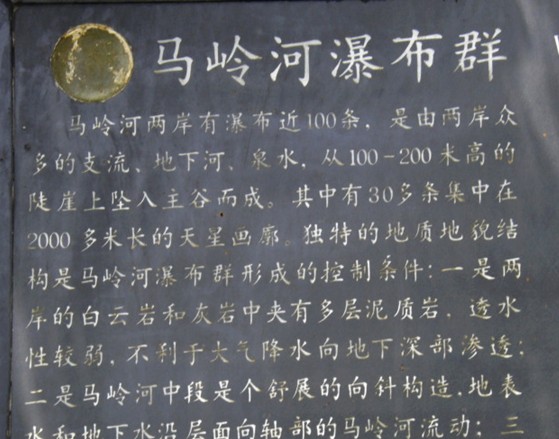 马岭河瀑布群
马岭河两岸有瀑布近100条，是由两岸众
多的支流、地下河、泉水，从100-200米高的
陡崖上坠入主谷而成。其中有30多条集中在
2000多米长的天星画廊。独特的地质地貌结
构是马岭河瀑布群形成的控制条件：一是两
岸的白云岩和灰岩中夹有多层泥质岩，透水
性较弱，不利于大气降水向地下深部渗透；
二是马岭河中段是个舒展的向斜构造，地表
水和地下水沿层面向轴部的马岭河流动；三